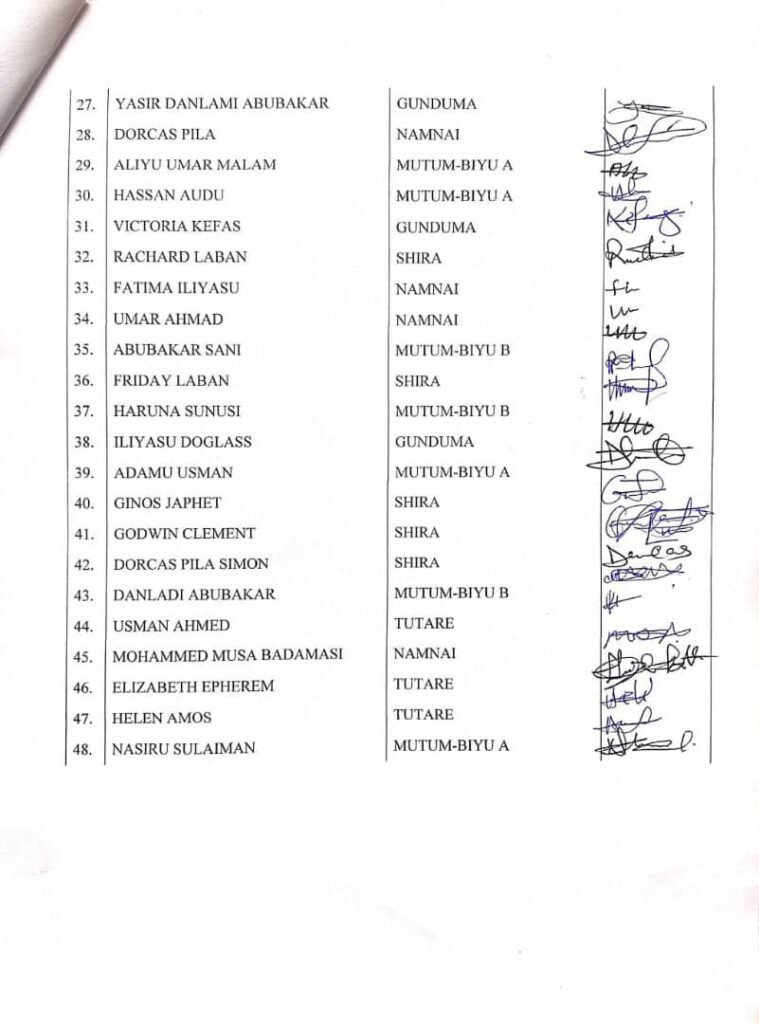 27. YASIR DANLAMI ABUBAKAR GUNDUMA
28. DORCAS PILA NAMNAI
29. ALIYU UMAR MALAM MUTUM-BIYU A
30. HASSAN AUDU MUTUM-BIYU A
31. VICTORIA KEFAS GUNDUMA
32. RACHARD LABAN SHIRA
33. FATIMA ILIYASU NAMNAI
34. UMAR AHMAD NAMNAI
35. ABUBAKAR SANI MUTUM-BIYU B
36. FRIDAY LABAN SHIRA
37. HARUNA SUNUSI MUTUM-BIYU B
38. ILIYASU DOGLASS GUNDUMA
39. ADAMU USMAN MUTUM-BIYU A
40. GINOS JAPHET SHIRA
41. GODWIN CLEMENT SHIRA
42. DORCAS PILA SIMON SHIRA
43. DANLADI ABUBAKAR MUTUM-BIYU B
44. USMAN AHMED TUTARE
45. MOHAMMED MUSA BADAMASI NAMNAI
46. ELIZABETH EPHEREM TUTARE
47. HELEN AMOS TUTARE
48. NASIRU SULAIMAN MUTUM-BIYU A